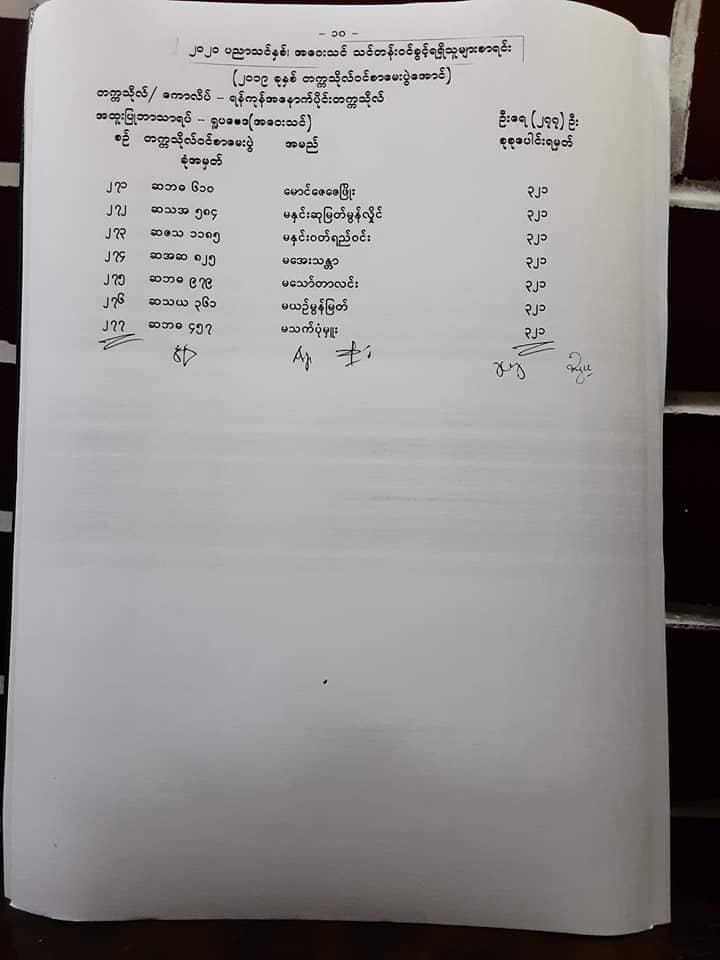 - ၁၀ -
၂၀၂၀ ပညာသင်နှစ်၊ အဝေးသင် သင်တန်းဝင်ခွင့်ရရှိသူများစာရင်း
(၂၀၁၉ ခုနှစ် တက္ကသိုလ်ဝင်စာမေးပွဲအောင်)
တက္ကသိုလ်/ ကောလိပ် - ရန်ကုန်အနောက်ပိုင်းတက္ကသိုလ်
အထူးပြုဘာသာရပ် - ရူပဗေဒ(အဝေးသင်) ဦးရေ (၂၇၇) ဦး
စဉ် တက္ကသိုလ်ဝင်စာမေးပွဲ အမည် စုစုပေါင်းရမှတ်
ခုံအမှတ်
၂၇၁ ဆဘဓ ၆၁၀ မောင်ဇေဇေဖြိုး ၃၂၁
၂၇၂ ဆသအ ၅၈၄ မနှင်းဆုမြတ်မွန်လှိုင် ၃၂၁
၂၇၃ ဆဇသ ၁၁၈၅ မနှင်းဝတ်ရည်ဝင်း ၃၂၁
၂၇၄ ဆအဆ ၈၂၅ မအေးသန္တာ ၃၂၁
၂၇၅ ဆဘဓ ၉၇၉ မသော်တာလင်း ၃၂၁
၂၇၆ ဆသယ ၃၆၁ မယဉ်မွန်မြတ် ၃၂၁
၂၇၇ ဆဘဓ ၄၅၇ မသက်ပုံမှူး ၃၂၁